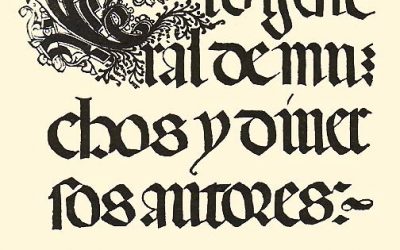 ro gene
ral de mu:
chos y diuer
ſos autores:~